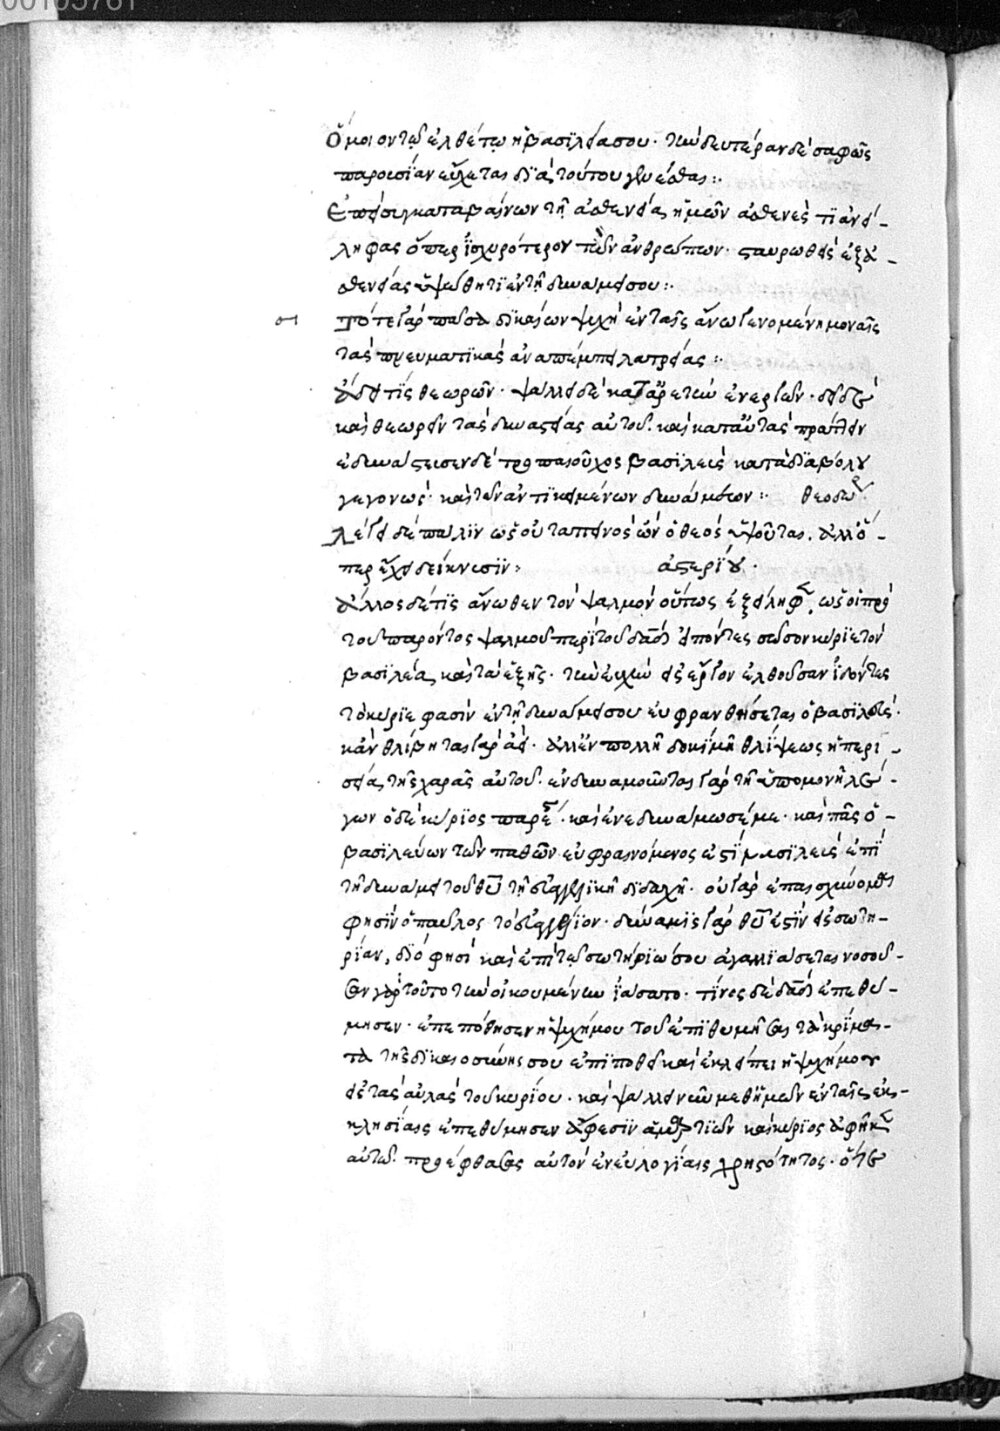 00105761
Ὅμοιον τῷ ἐλθέτω ἡ βασιλεία σου· τὴν δευτέραν δὲ σαφῶς
παρουσίαν εὔχεται διὰ τούτου γενέσθαι:
Ἐπεὶ συγκαταβαίνων τῇ ἀσθενείᾳ ἡμῶν ἀσθενές τι ἀνεί-
ληφας ὅπερ ἰσχυρότερον τῶν ἀνθρώπων· σταυρωθεὶς ἐξ ἀ-
σθενείας ὑψώθητι ἐν τῇ δυνάμει σου:
Τότε γὰρ πᾶσα δικαίων ψυχὴ ἐν ταῖς ἄνω γενομένη μοναῖς
τὰς πνευματικὰς ἀναπέμπει λατρείας:
ᾄδει τις θεωρῶν· ψάλλει δὲ κατ' ἀρετὴν ἐνεργῶν·
καὶ θεωρεῖν τὰς δυναστείας αὐτοῦ· καὶ κατ' αὐτὰς πράττειν
ἐδυνάστευσεν δὲ τροπαιοῦχος βασιλεὺς κατὰ διαβόλου
γεγονώς· καὶ τῶν ἀντικειμένων δυνάμεων: θεοδω
Λέγει δὲ πάλιν ὡς οὐ ταπεινὸς ὢν ὁ θεὸς ὑψοῦται. ἀλλ' ὅ-
περ ἔχει δείκνυσιν: ἀστερίου·
Ἄλλος δέ τις ἄνωθεν τὸν ψαλμὸν οὕτως ἐξείληφεν, ὡς οἱ πρὸ
τοῦ παρόντος ψαλμοῦ περὶ τοῦ δαδ εἰπόντες σῶσον κύριε τὸν
βασιλέα, καὶ τὰ ἑξῆς· τὴν εὐχὴν εἰς ἔργον ἐλθοῦσαν ἰδόντες
τὸ κύριε φασὶν ἐν τῇ δυνάμει σου εὐφρανθήσεται ὁ βασιλεύς·
κἂν θλίβηται γὰρ ἀεί· ἀλλ' ἐν πολλῇ δοκιμῇ θλίψεως ἡ περι-
σεία τῆς χαρᾶς αὐτοῦ· ἐνδυναμοῦται γὰρ τῇ ὑπομονῇ λέ-
γων ὁ δὲ κύριος παρέστη· καὶ ἐνεδυνάμωσέ με· καὶ πᾶς ὁ
βασιλεύων τῶν παθῶν εὐφραινόμενός ἐστι βασιλεὺς ἐπὶ
τῇ δυνάμει τοῦ θυ τῇ εὐαγγελικῇ διδαχῇ· οὐ γὰρ ἐπαισχύνομαι
φησὶν ὁ παῦλος τὸ εὐαγγέλιον· δύναμις γὰρ θυ ἐστὶν εἰς σωτη-
ρίαν, διό φησι καὶ ἐπὶ τῷ σωτηρίῳ σου ἀγαλλιάσεται νοσοῦ-
σαν γὰρ τοῦτο τὴν οἰκουμένην ἰάσατο· τίνος δὲ δαδ ἐπεθύ-
μησεν· ἐπεπόθησεν ἡ ψυχή μου τοῦ ἐπιθυμῆσαι τὰ κρίμα-
τα τῆς δικαιοσύνης σου ἐπιποθεῖ καὶ ἐκλείπει ἡ ψυχή μου
εἰς τὰς αὐλὰς τοῦ κυρίου· καὶ ψάλλει νῦν μεθ' ἡμῶν ἐν ταῖς ἐκ-
κλησίαις ἐπεθύμησεν ἄφεσιν ἁμαρτιῶν καὶ κύριος ἀφῆκεν
αὐτῷ· προέφθασας αὐτὸν ἐν εὐλογίαις χρηστότητος· ὅτε